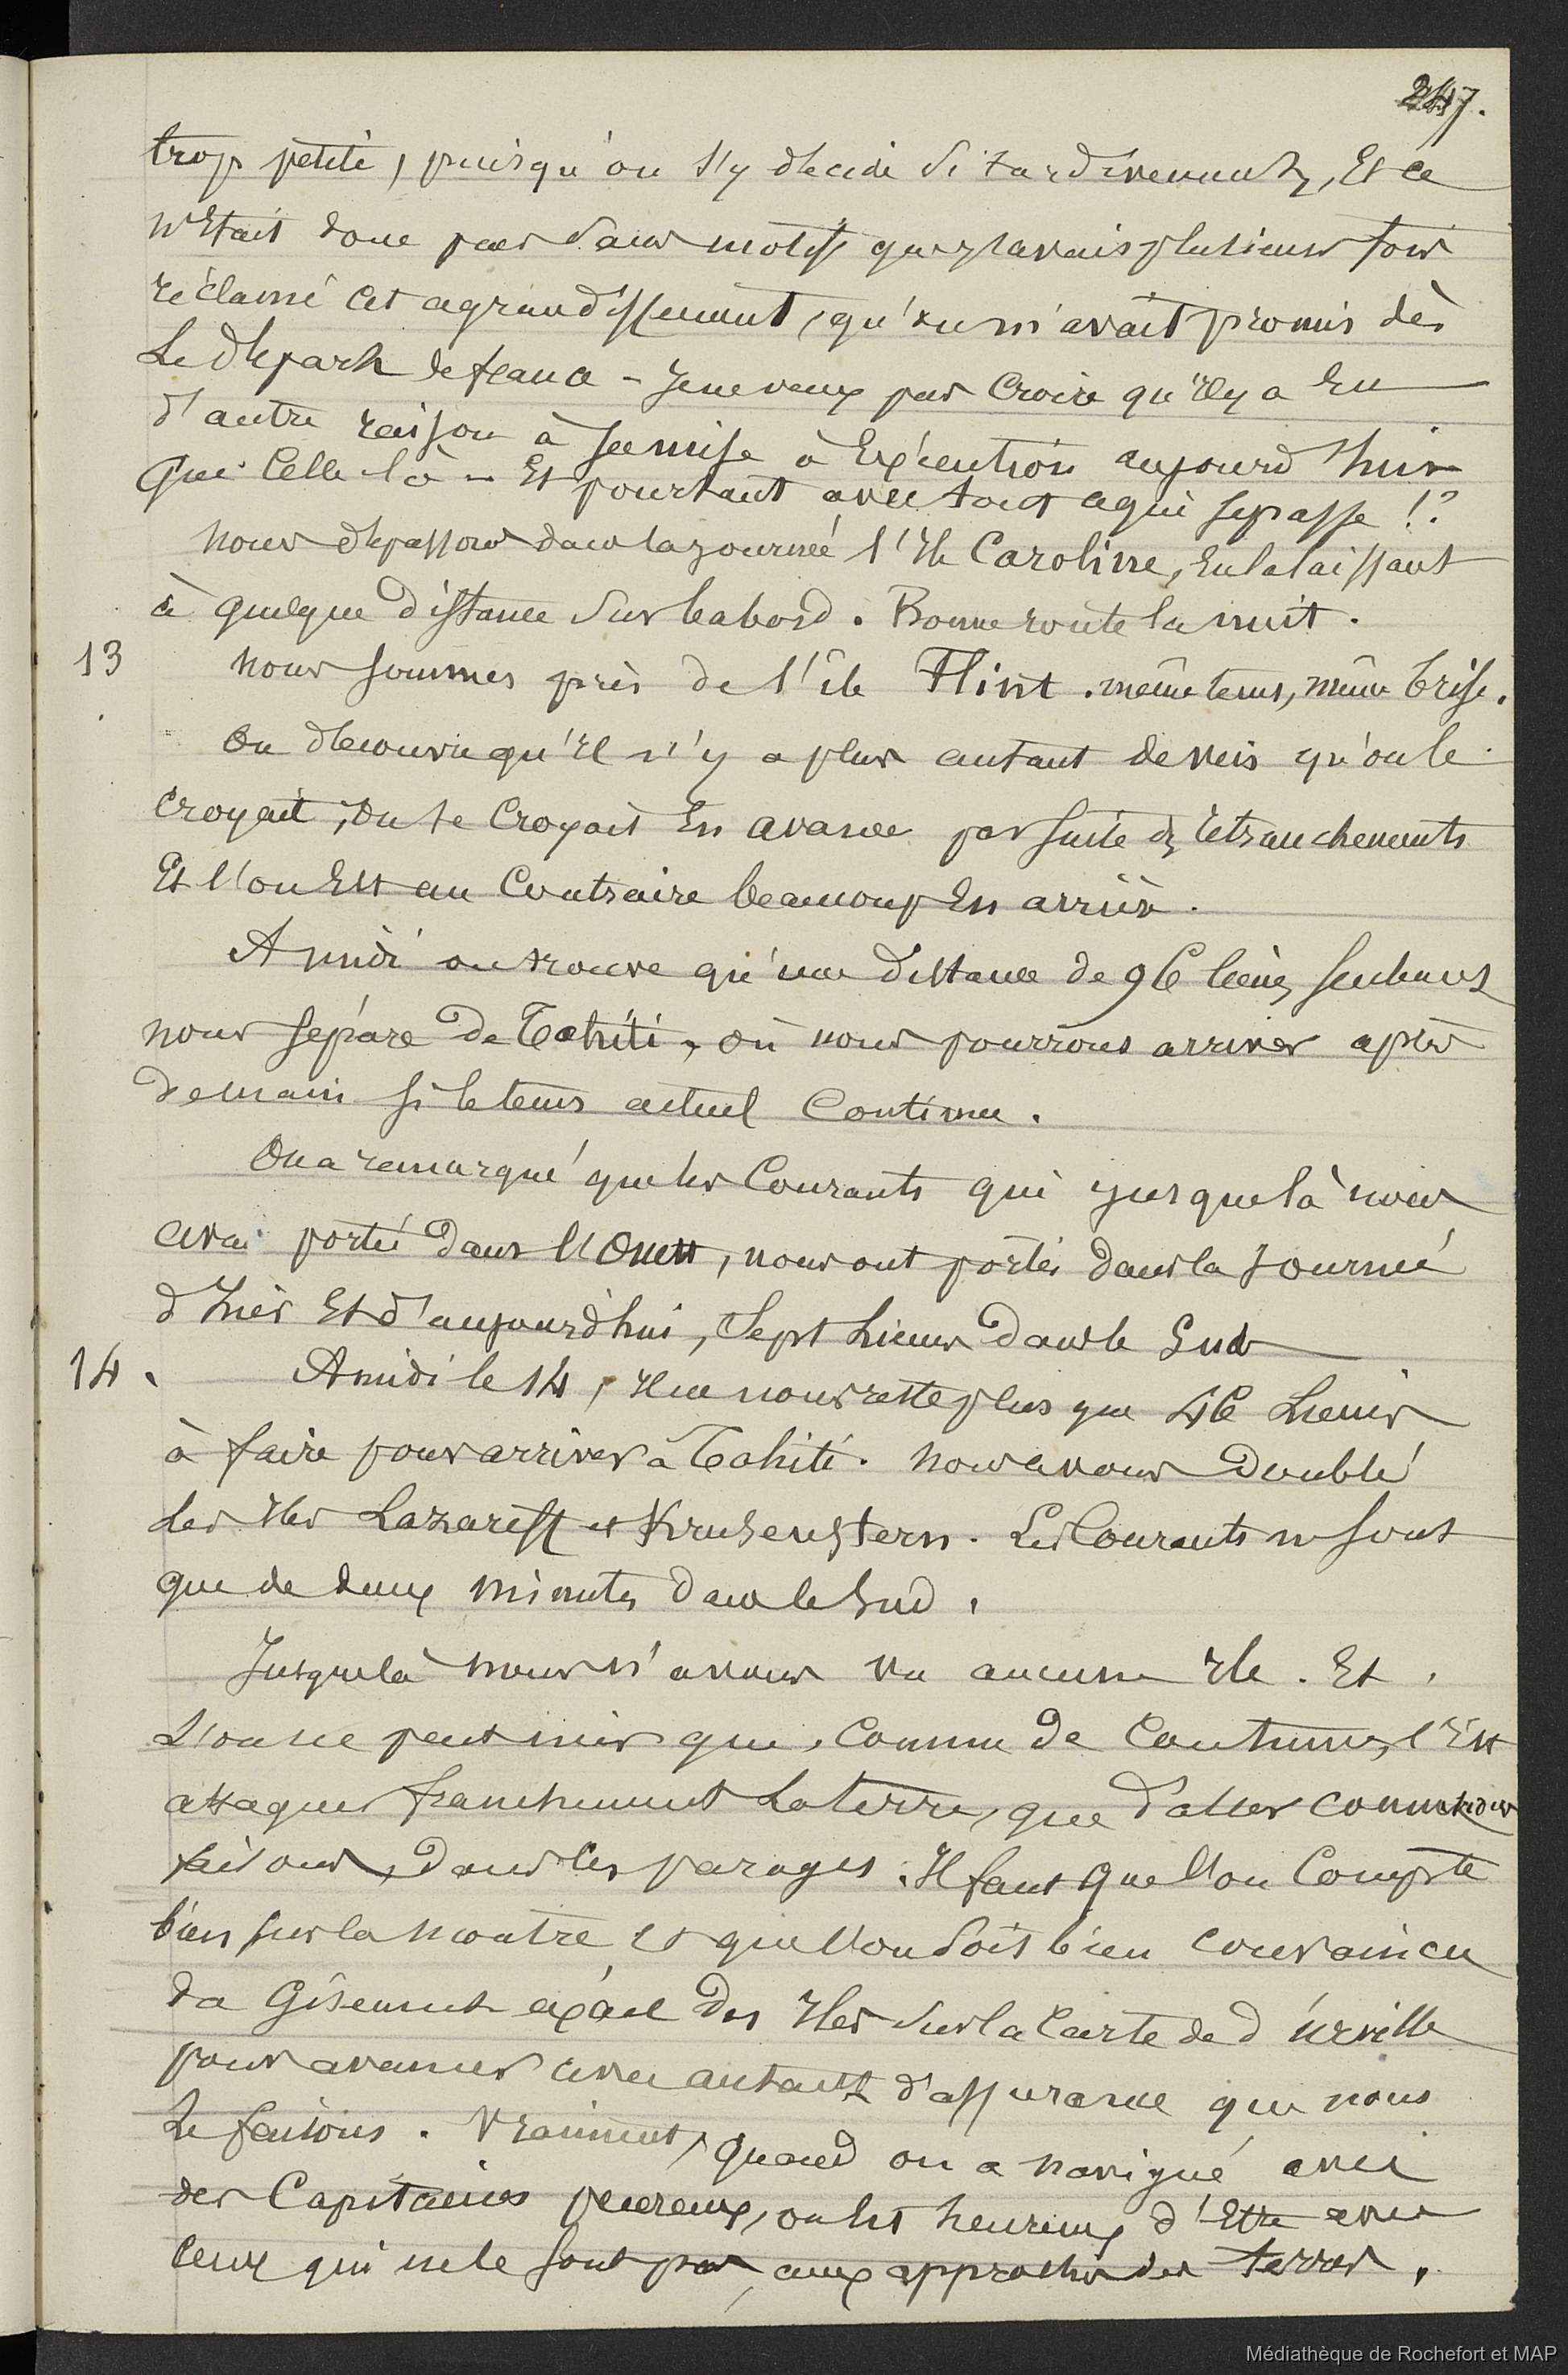 247.
trop petite, puisqu'on s'y décide si tardivement, Et ce
n'Etait donc pas sans motifs que j'avais plusieurs fois
réclamé cet agrandissement, qu'on m'avait promis dès
Le départ de france - Je ne veux pas Croire qu'il y a Eu
d'autre raison à sa mise à Exécution aujourd'hui
que Celle là - Et pourtant avec tout ce qui se passe !?
Nous dépassons dans la journée l'Ile Caroline, En la laissant
à quelque distance sur babord. Bonne route la nuit.
13 Nous sommes près de l'île Flint. même tems, même brise.
On découvre qu'Il n'y a plus autant de vivres qu'on le
Croyait, On se Croyait En avance par suite des retranchements
Et l'on Est au Contraire beaucoup En arrière.
A midi on trouve qu'une distance de 96 lieues seulement
nous sépare de Tahiti, où nous pourrons arriver après
demain si le tems actuel Continue.
On a remarqué que les Courants qui jusque là nous
avai portés dans l'Ouest, nous ont portés dans la Journée
d'hier Et d'aujourd'hui, Sept Lieues dans le Sud
14. A midi le 14, Il ne nous reste plus que 46 Lieues
à faire pour arriver à Tahiti. Nous avons Doublé
Les Iles Lazareff et Krusenstern. Les Courants ne sont
que de deux minutes dans le Sud.
Jusque là nous n'avons vu aucune Ile. Et,
L'on ne peut nier que, Comme de Coutume, c'Est
attaquer franchement La terre, que d'aller comme nous
faisons, dans les parages. Il faut que l'on Compte
bien sur la montre, et que l'on soit bien convaincu
du Gisement exact des Iles sur la Carte de d'urville
pour avancer avec autant d'assurance que nous
Le faisons. Vraiment, quand on a navigué avec
des Capitaines peureux, on Est heureux d'Etre avec
Ceux qui ne le sont pas, aux approches des terres.
Médiathèque de Rochefort et MAP